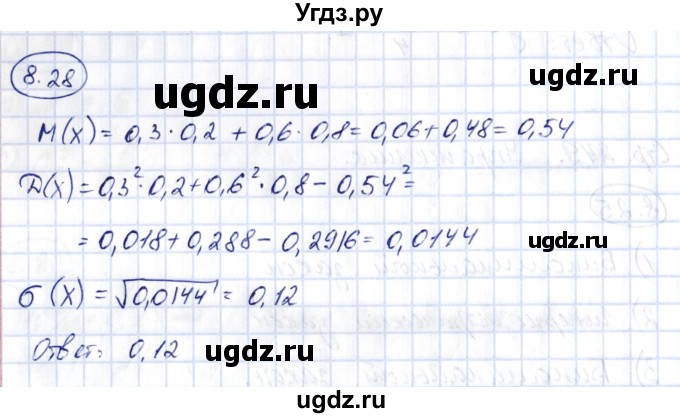 Угдз.ру
8.28
ugdz.ru
ugdz.ru
M(X) = 0,3 · 0,2 + 0,6 · 0,8 = 0,06 + 0,48 = 0,54
D(X) = 0,3² · 0,2 + 0,6² · 0,8 − 0,54² =
ugdz.ru
= 0,018 + 0,288 − 0,2916 = 0,0144
σ(X) = √0,0144 = 0,12
ugdz.ru
Ответ: 0,12
ugdz.ru
ugdz.ru